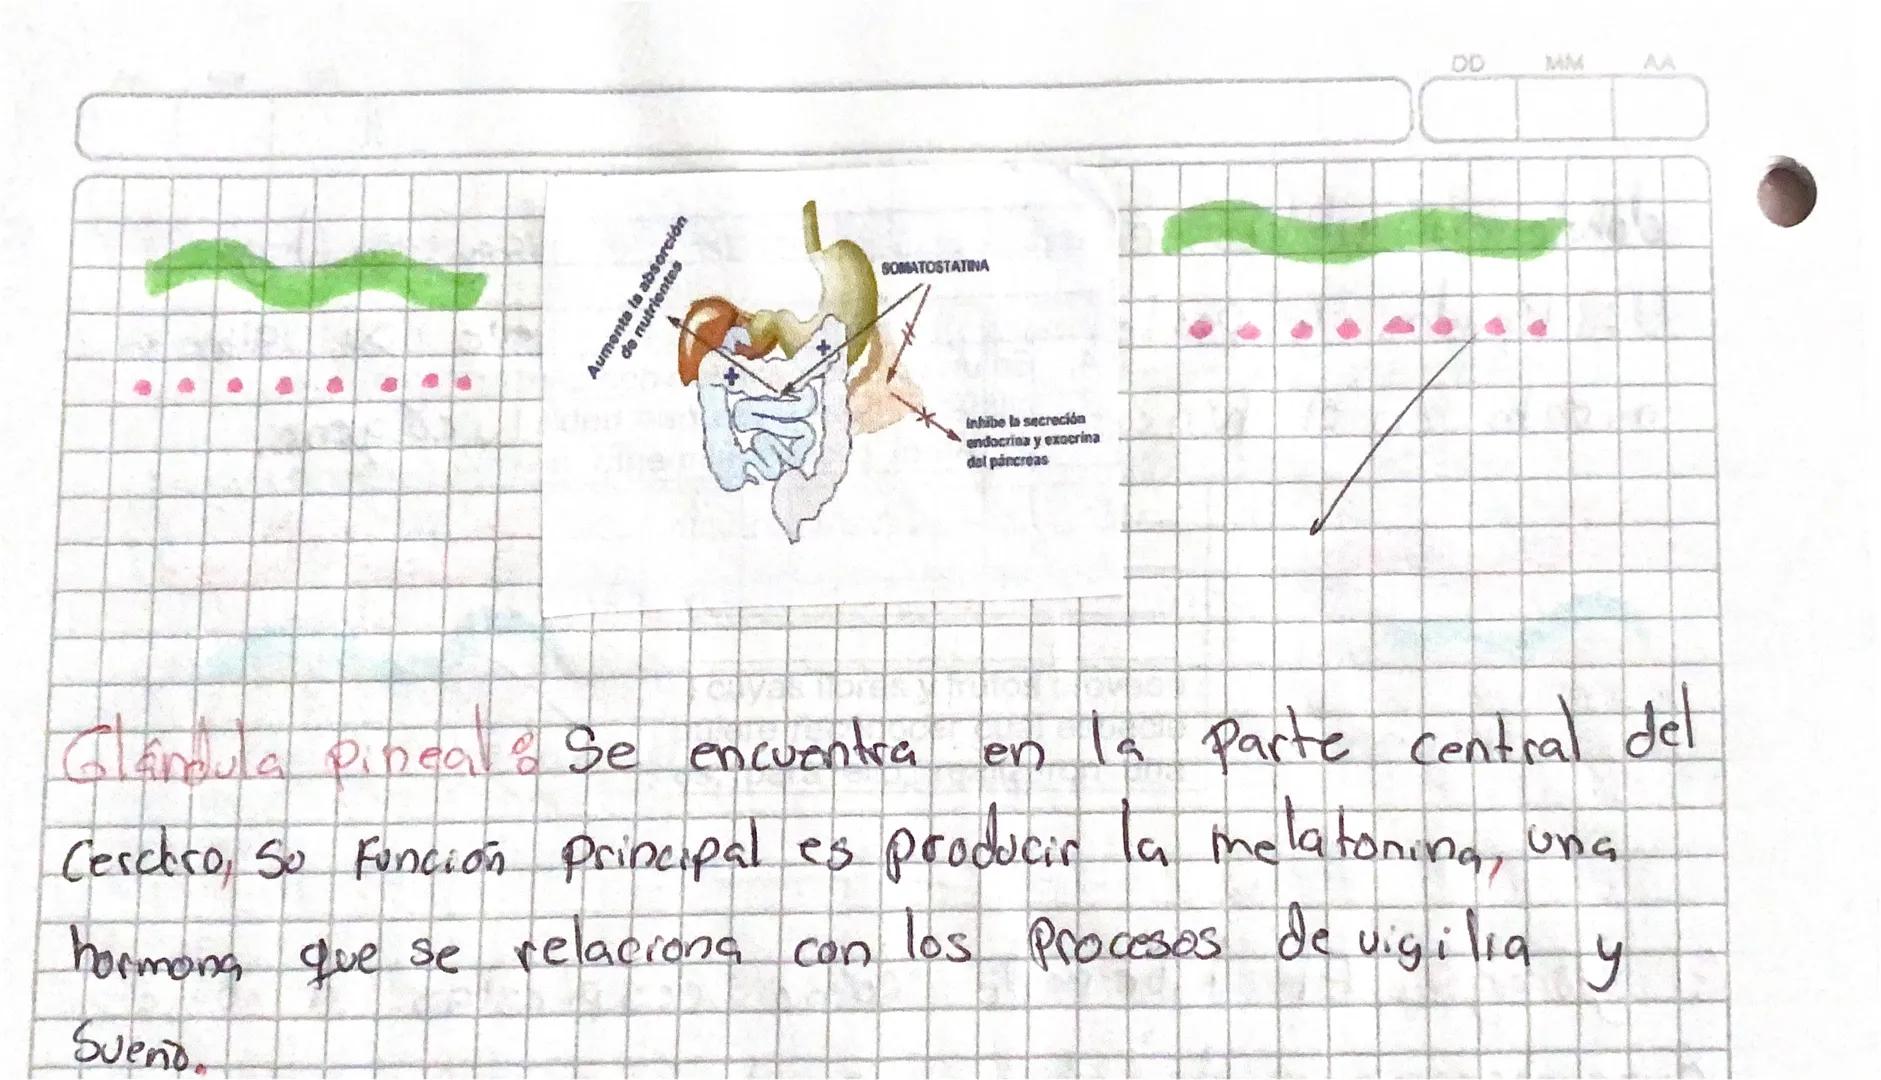 DD MM AA
Aumenta la absorción
de nutrientes
SOMATOSTATINA
Inhibe la secreción
endocrina y exocrina
del páncreas
Glándula pineal: Se encuentra en la parte central del
Cerebro, su función principal es producir la melatonina, una
hormona que se relaciona con los procesos de vigilia y
sueño.